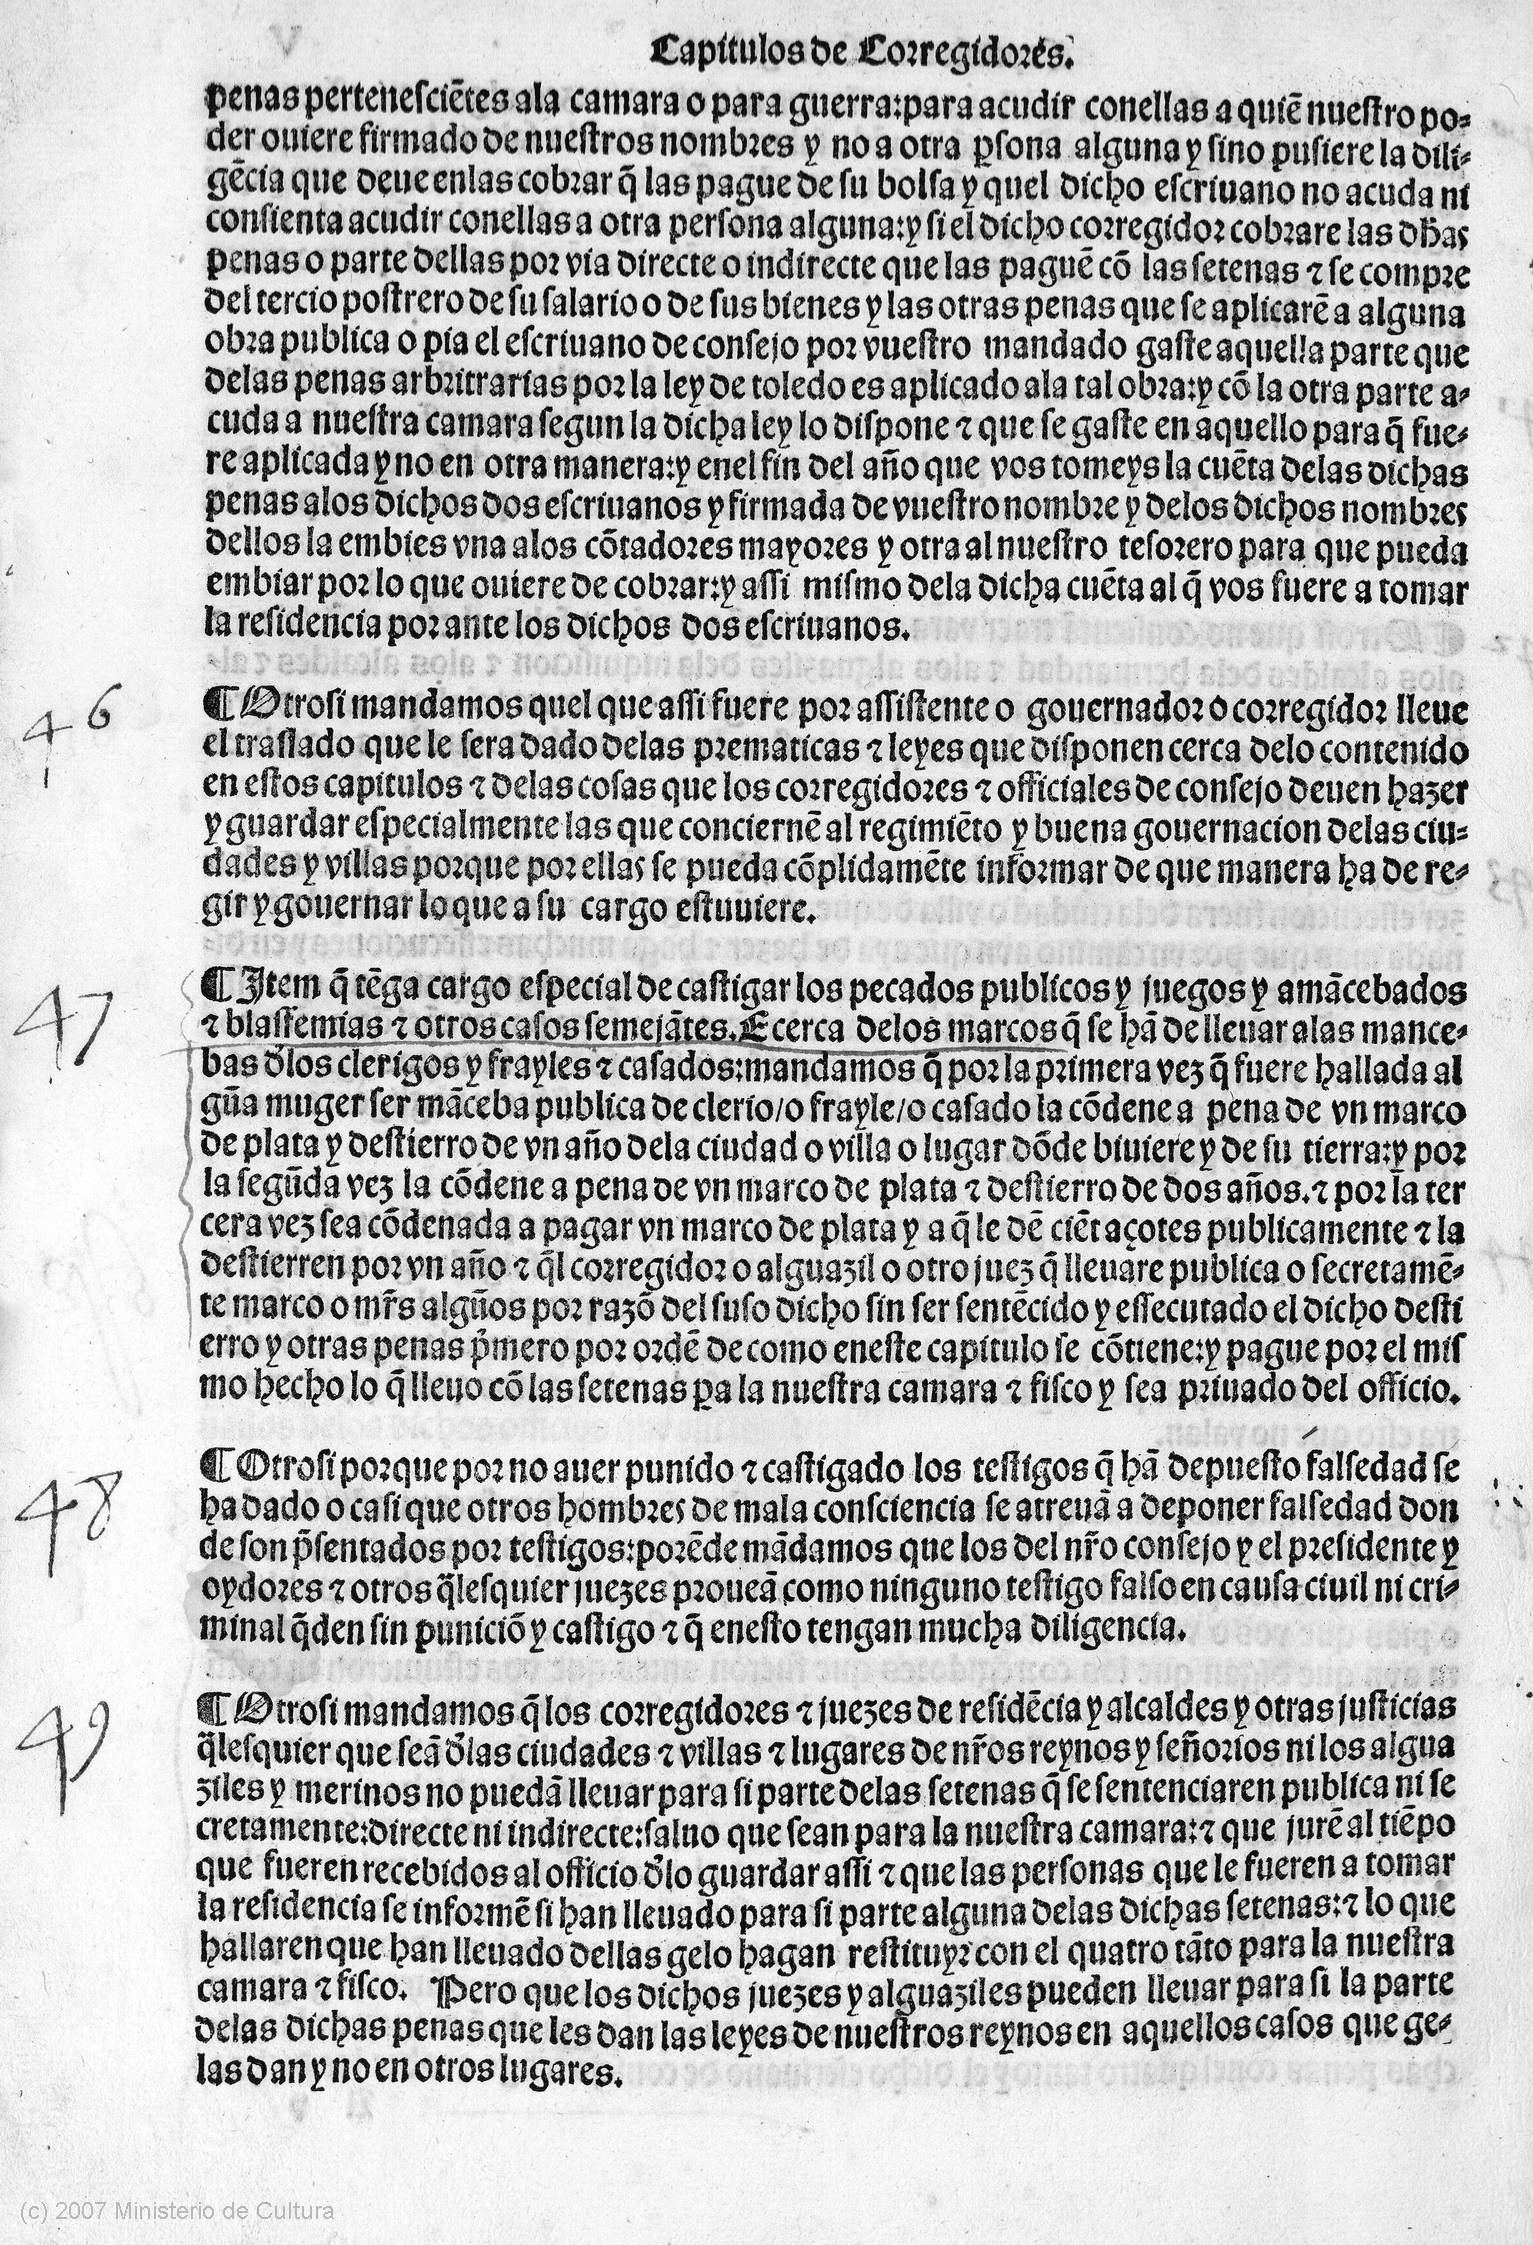 Capitulos de Corregidores.
penas pertenesciētes ala camara o para guerra:para acudir conellas a quiē nuestro po-
der ouiere firmado de nuestros nombres y no a otra ꝑsona alguna y sino pusiere la dili-
gēcia que deue enlas cobrar q̄ las pague de su bolsa y quel dicho escriuano no acuda ni
consienta acudir conellas a otra persona alguna:y si el dicho corregidor cobrare las dh̄as
penas o parte dellas por via directe o indirecte que las paguē cō las setenas ⁊ se compre
del tercio postrero de su salario o de sus bienes y las otras penas que se aplicarē a alguna
obra publica o pia el escriuano de consejo por vuestro mandado gaste aquella parte que
delas penas arbitrarias por la ley de toledo es aplicado ala tal obra:y cō la otra parte a-
cuda a nuestra camara segun la dicha ley lo dispone ⁊ que se gaste en aquello para q̄ fue-
re aplicada y no en otra manera:y enel fin del año que vos tomeys la cuēta delas dichas
penas alos dichos dos escriuanos y firmada de vuestro nombre y delos dichos nombres
dellos la embies vna alos cōtadores mayores y otra al nuestro tesorero para que pueda
embiar por lo que ouiere de cobrar:y assi mismo dela dicha cuēta al q̄ vos fuere a tomar
la residencia por ante los dichos dos escriuanos.
46
¶ Otrosi mandamos quel que assi fuere por assistente o gouernador o corregidor lleue
el traslado que le sera dado delas prematicas ⁊ leyes que disponen cerca delo contenido
en estos capitulos ⁊ delas cosas que los corregidores ⁊ officiales de consejo deuen hazer
y guardar especialmente las que conciernē al regimiēto y buena gouernacion delas ciu-
dades y villas porque por ellas se pueda cōplidamēte informar de que manera ha de re-
gir y gouernar lo que a su cargo estuuiere.
47
¶ Item q̄ tēga cargo especial de castigar los pecados publicos y juegos y amācebados
⁊ blasfemias ⁊ otros casos semejātes. E cerca delos marcos q̄ se hā de lleuar alas mance-
bas d̄los clerigos y frayles ⁊ casados:mandamos q̄ por la primera vez q̄ fuere hallada al
gūa muger ser māceba publica de clerio/o frayle/o casado la cōdene a pena de vn marco
de plata y destierro de vn año dela ciudad o villa o lugar dōde biuiere y de su tierra:y por
la segūda vez la cōdene a pena de vn marco de plata ⁊ destierro de dos años.⁊ por la ter
cera vez sea cōdenada a pagar vn marco de plata y a q̄ le dē ciēt açotes publicamente ⁊ la
destierren por vn año ⁊ q̄l corregidor o alguazil o otro juez q̄ lleuare publica o secretamē-
te marco o mr̄s algūos por razō del suso dicho sin ser sentēcido y essecutado el dicho desti
erro y otras penas p̄mero por ordē de como eneste capitulo se cōtiene:y pague por el mis
mo hecho lo q̄ lleuo cō las setenas ꝑa la nuestra camara ⁊ fisco y sea priuado del officio.
48
¶ Otrosi porque por no auer punido ⁊ castigado los testigos q̄ hā depuesto falsedad se
ha dado o casi que otros hombres de mala consciencia se atreuā a deponer falsedad don
de son p̄sentados por testigos:porēde mādamos que los del nr̄o consejo y el presidente y
oydores ⁊ otros q̄lesquier juezes proueā como ninguno testigo falso en causa ciuil ni cri-
minal q̄den sin puniciō y castigo ⁊ q̄ enesto tengan mucha diligencia.
49
¶ Otrosi mandamos q̄ los corregidores ⁊ juezes de residēcia y alcaldes y otras justicias
q̄lesquier que seā d̄las ciudades ⁊ villas ⁊ lugares de nr̄os reynos y señorios ni los algua
ziles y merinos no puedā lleuar para si parte delas setenas q̄ se sentenciaren publica ni se
cretamente:directe ni indirecte:saluo que sean para la nuestra camara:⁊ que jurē al tiēpo
que fueren recebidos al officio d̄lo guardar assi ⁊ que las personas que le fueren a tomar
la residencia se informē si han lleuado para si parte alguna delas dichas setenas:⁊ lo que
hallaren que han lleuado dellas gelo hagan restituyr con el quatro tāto para la nuestra
camara ⁊ fisco. Pero que los dichos juezes y alguaziles pueden lleuar para si la parte
delas dichas penas que les dan las leyes de nuestros reynos en aquellos casos que ge-
las dan y no en otros lugares.
(c) 2007 Ministerio de Cultura